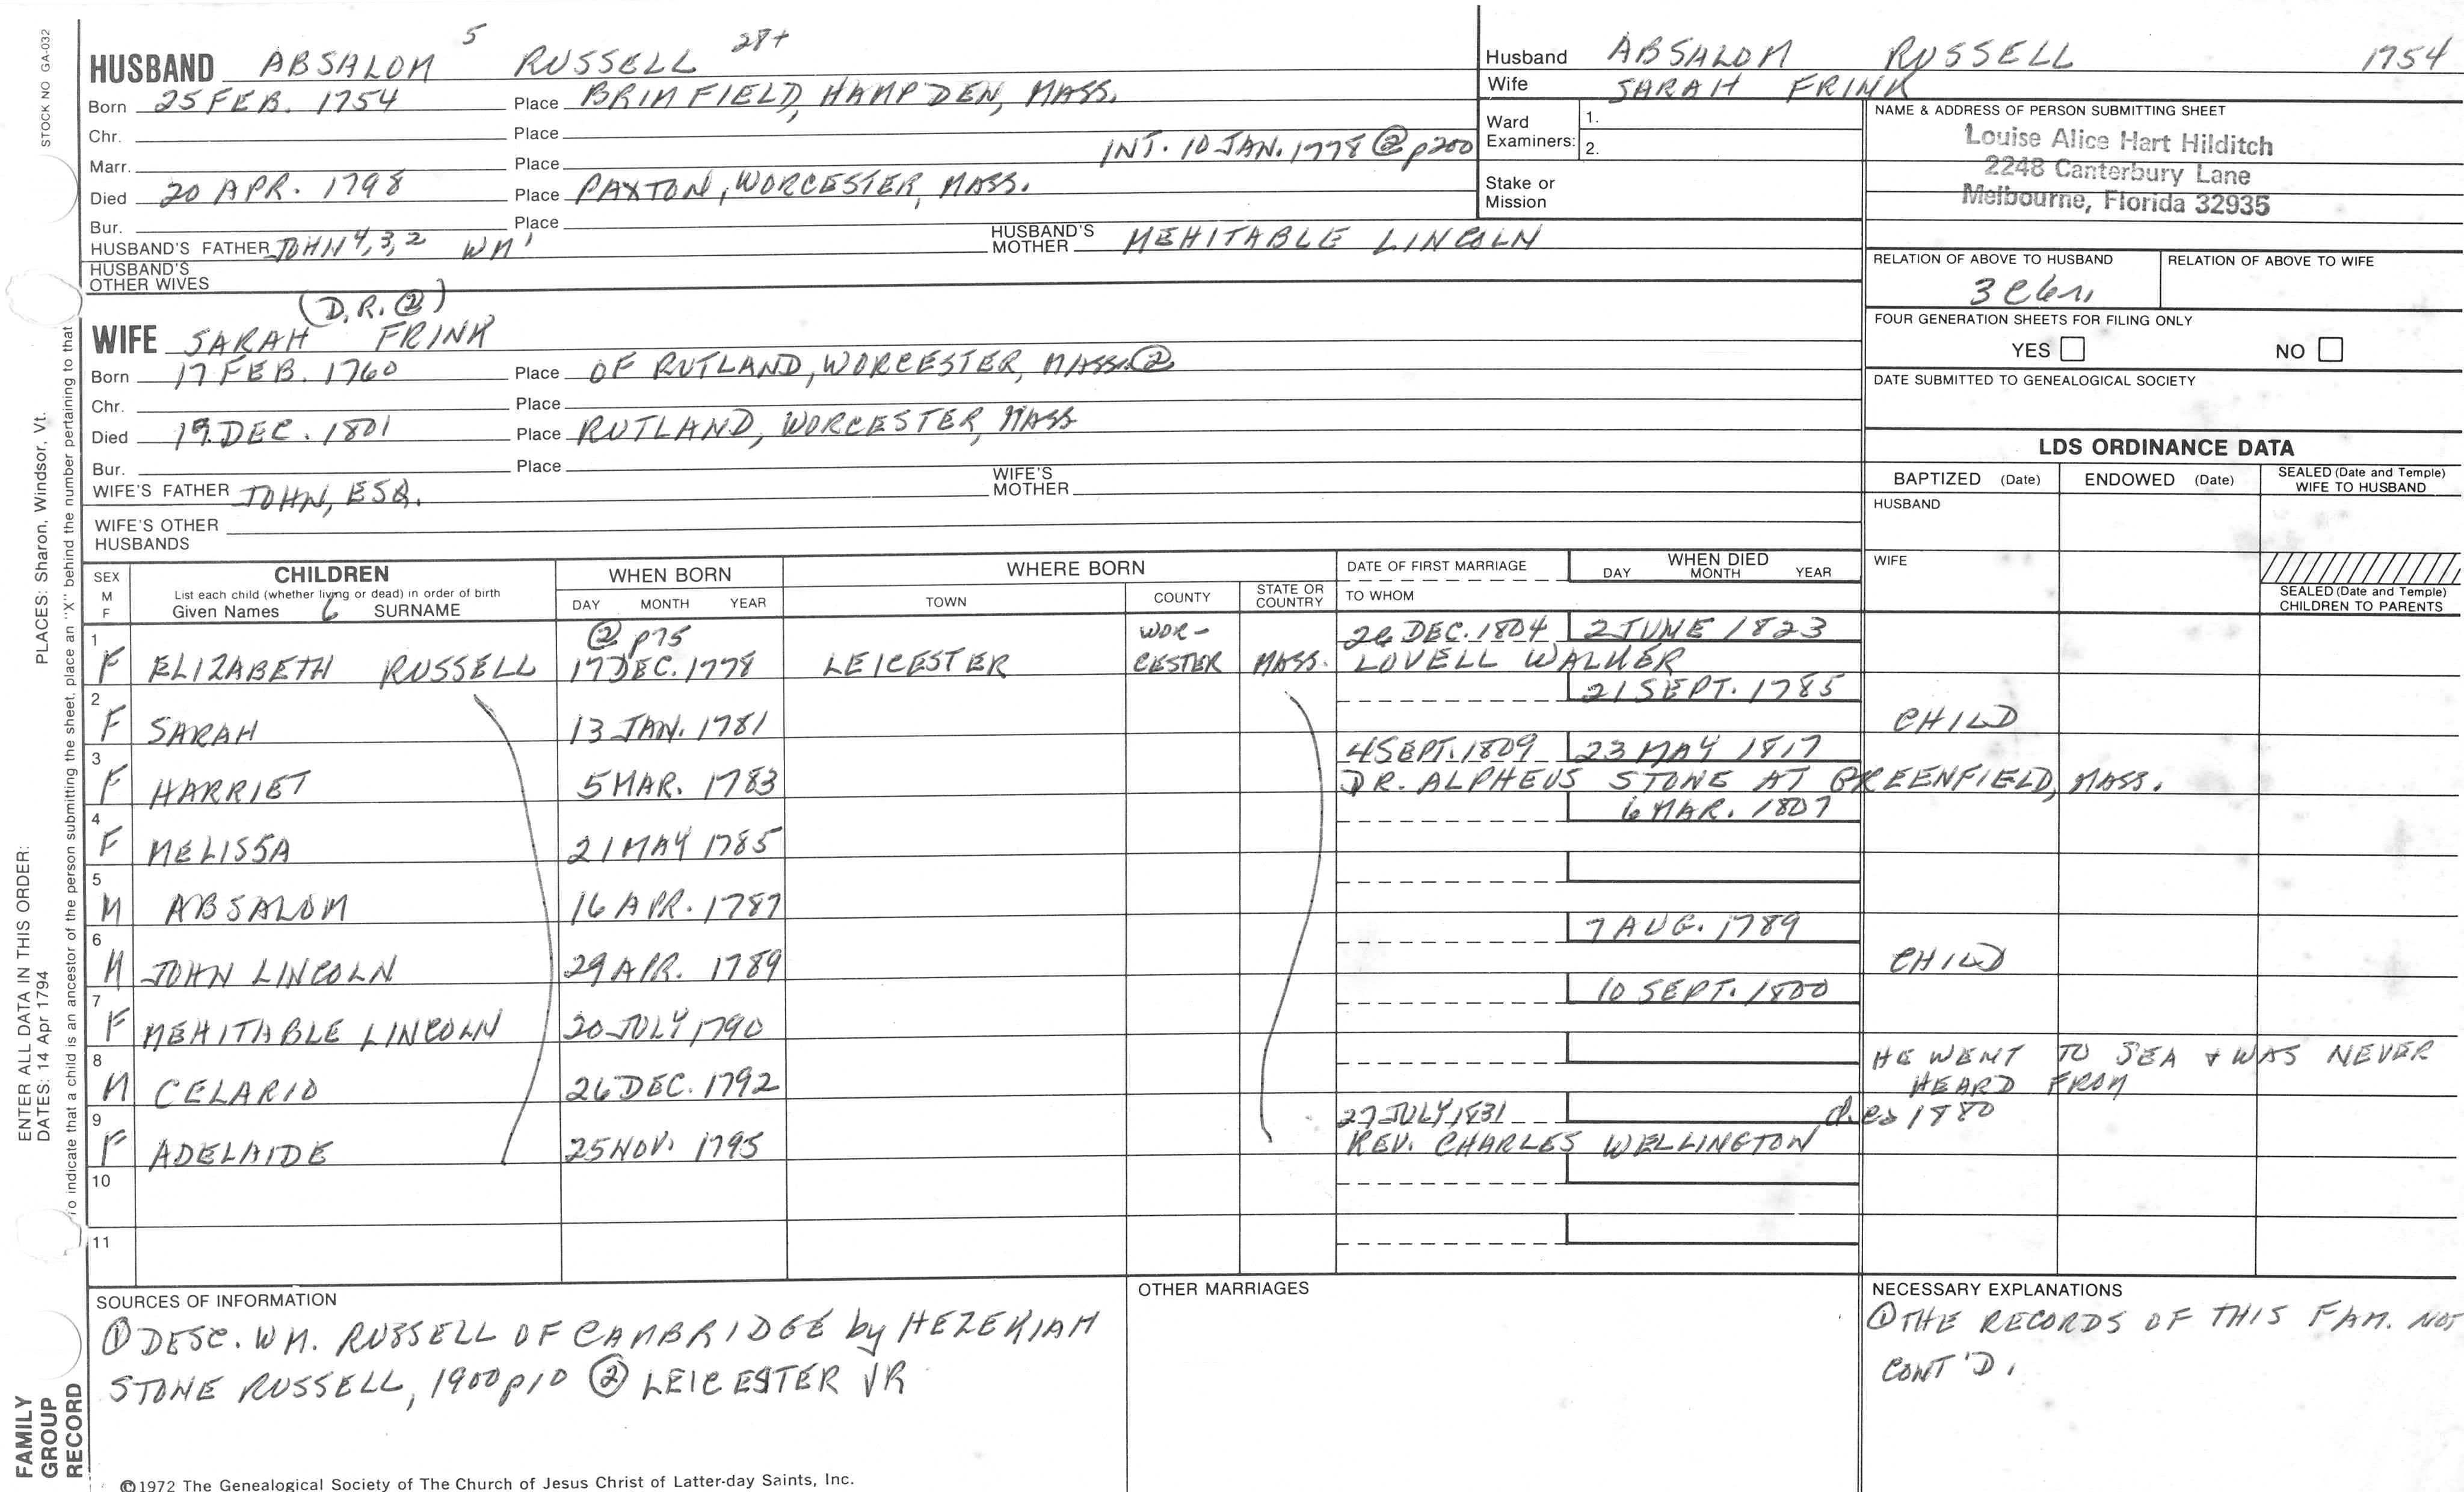 STOCK NO GA-032
HUSBAND ABSALOM 5 RUSSELL 28+
Born 25 FEB. 1754 Place BRIMFIELD, HAMPDEN, MASS.
Chr. Place
Marr. Place INT. 10 JAN. 1778 ② p200
Died 20 APR. 1798 Place PAXTON, WORCESTER, MASS.
Bur. Place
HUSBAND'S FATHER JOHN 4,3,2 WM' HUSBAND'S MOTHER MEHITABLE LINCOLN
HUSBAND'S OTHER WIVES
(D.R. ②)
WIFE SARAH FRINK
Born 17 FEB. 1760 Place OF RUTLAND, WORCESTER, MASS. ②
Chr. Place
Died 19 DEC. 1801 Place RUTLAND, WORCESTER, MASS
Bur. Place
WIFE'S FATHER JOHN, ESQ. WIFE'S MOTHER
WIFE'S OTHER HUSBANDS
Husband ABSALOM RUSSELL 1754
Wife SARAH FRINK
Ward Examiners: 1.
2.
Stake or Mission
NAME & ADDRESS OF PERSON SUBMITTING SHEET
Louise Alice Hart Hilditch
2248 Canterbury Lane
Melbourne, Florida 32935
RELATION OF ABOVE TO HUSBAND RELATION OF ABOVE TO WIFE
3
FOUR GENERATION SHEETS FOR FILING ONLY
YES NO
DATE SUBMITTED TO GENEALOGICAL SOCIETY
LDS ORDINANCE DATA
BAPTIZED (Date) ENDOWED (Date) SEALED (Date and Temple) WIFE TO HUSBAND
HUSBAND
WIFE
SEALED (Date and Temple) CHILDREN TO PARENTS
SEX M F
CHILDREN
List each child (whether living or dead) in order of birth
Given Names 6 SURNAME
WHEN BORN
DAY MONTH YEAR
WHERE BORN
TOWN COUNTY STATE OR COUNTRY
DATE OF FIRST MARRIAGE
TO WHOM
WHEN DIED
DAY MONTH YEAR
② p75 WOR- DEC. 1804 2 JUNE 1823
1 F ELIZABETH RUSSELL 17 DEC. 1778 LEICESTER CESTER MASS. LOVELL WALKER
21 SEPT. 1785
2 F SARAH 13 JAN. 1781 CHILD
4 SEPT. 1809 23 MAY 1817
3 F HARRIET 5 MAR. 1783 DR. ALPHEUS STONE AT GREENFIELD, MASS.
6 MAR. 1807
4 F MELISSA 21 MAY 1785
5 M ABSALOM 16 APR. 1787
7 AUG. 1789
6 M JOHN LINCOLN 29 APR. 1789 CHILD
10 SEPT. 1800
7 F MEHITABLE LINCOLN 20 JULY 1790
HE WENT TO SEA & WAS NEVER
8 M CELARIO 26 DEC. 1792 HEARD FROM
27 JULY 1831 1880
9 F ADELAIDE 25 NOV. 1795 REV. CHARLES WELLINGTON
10
11
SOURCES OF INFORMATION
① DESC. WM. RUSSELL OF CAMBRIDGE by HEZEKIAH
STONE RUSSELL, 1900 p10 ② LEICESTER VR
OTHER MARRIAGES
NECESSARY EXPLANATIONS
① THE RECORDS OF THIS FAM. NOT
CONT'D.
©1972 The Genealogical Society of The Church of Jesus Christ of Latter-day Saints, Inc.
PLACES: Sharon, Windsor, Vt.
To indicate that a child is an ancestor of the person submitting the sheet, place an "X" behind the number pertaining to that
ENTER ALL DATA IN THIS ORDER:
DATES: 14 Apr 1794
FAMILY
GROUP
RECORD